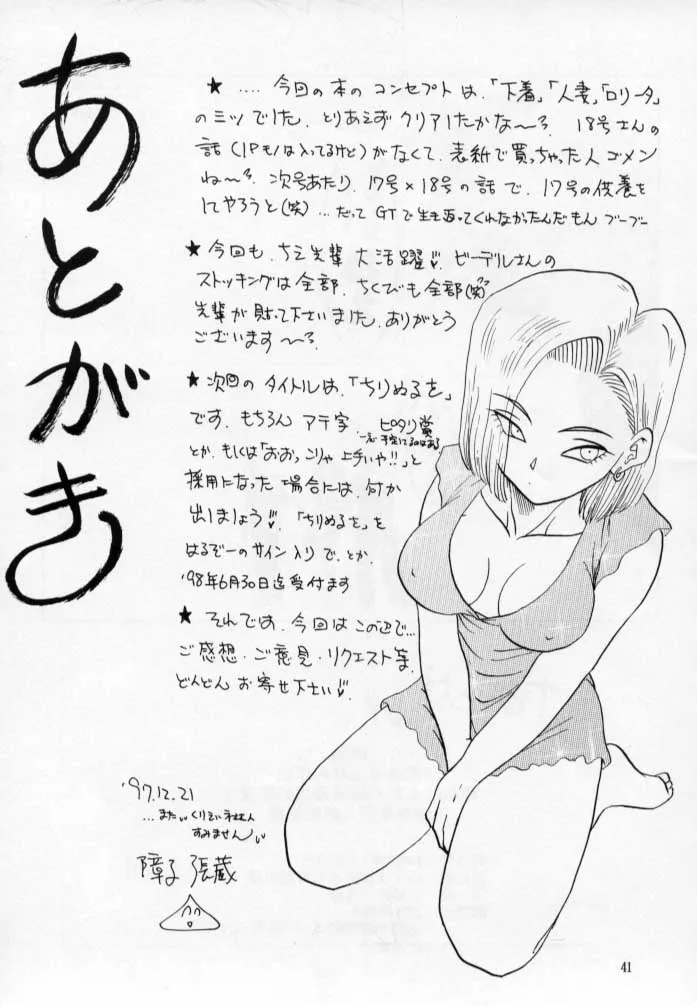 あとがき
★ ‥‥今回の本のコンセプトは、「下着」、「人妻」、「ロリータ」
の三ツでした。とりあえずクリアしたかな〜? 18号さんの
話(1Pモノは入ってるけど)がなくて、表紙で買っちゃった人ゴメン
ね〜? 次号あたり、17号×18号の話で、17号の供養を
してやろうと(笑)…だって GTで生き返ってくれなかったんだもん ブーブー
★ 今回も、ちえ先輩 大活躍 ビーデルさんの
ストッキングは全部、ちくびも全部(笑)
先輩が貼って下さいました。ありがとう
ございます〜
★ 次回のタイトルは、「ちりぬるを」
です。もちろん アテ字。ピタリ賞
とか、もしくは「おおっ こりゃ上手いや!!」と
採用になった場合には、何か
出しましょう 「ちりぬるを」を
はるぞーのサイン入りで、とか。
'98年6月30日迄受付ます
★ それでは、今回はこの辺で…
ご感想・ご意見・リクエスト等、
どんどん お寄せ下さい
'97.12.21
…また
すみません
障子 張蔵
41